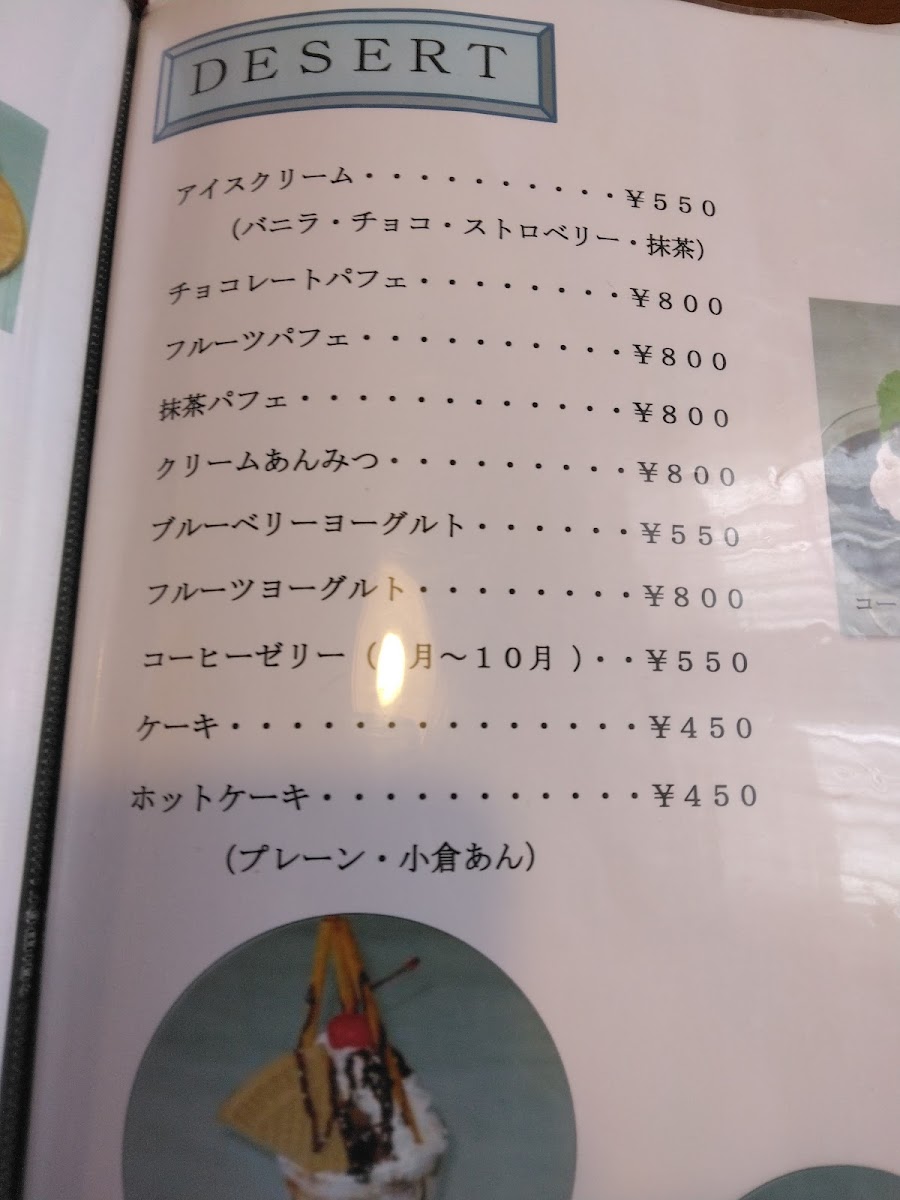 DESERT
アイスクリーム・・・・・・・・・・¥５５０
（バニラ・チョコ・ストロベリー・抹茶）
チョコレートパフェ・・・・・・・・¥８００
フルーツパフェ・・・・・・・・・・¥８００
抹茶パフェ・・・・・・・・・・・・¥８００
クリームあんみつ・・・・・・・・・¥８００
ブルーベリーヨーグルト・・・・・・¥５５０
フルーツヨーグルト・・・・・・・・¥８００
コーヒーゼリー（ 月～１０月 ）・・¥５５０
ケーキ・・・・・・・・・・・・・・¥４５０
ホットケーキ・・・・・・・・・・・¥４５０
（プレーン・小倉あん）
コー